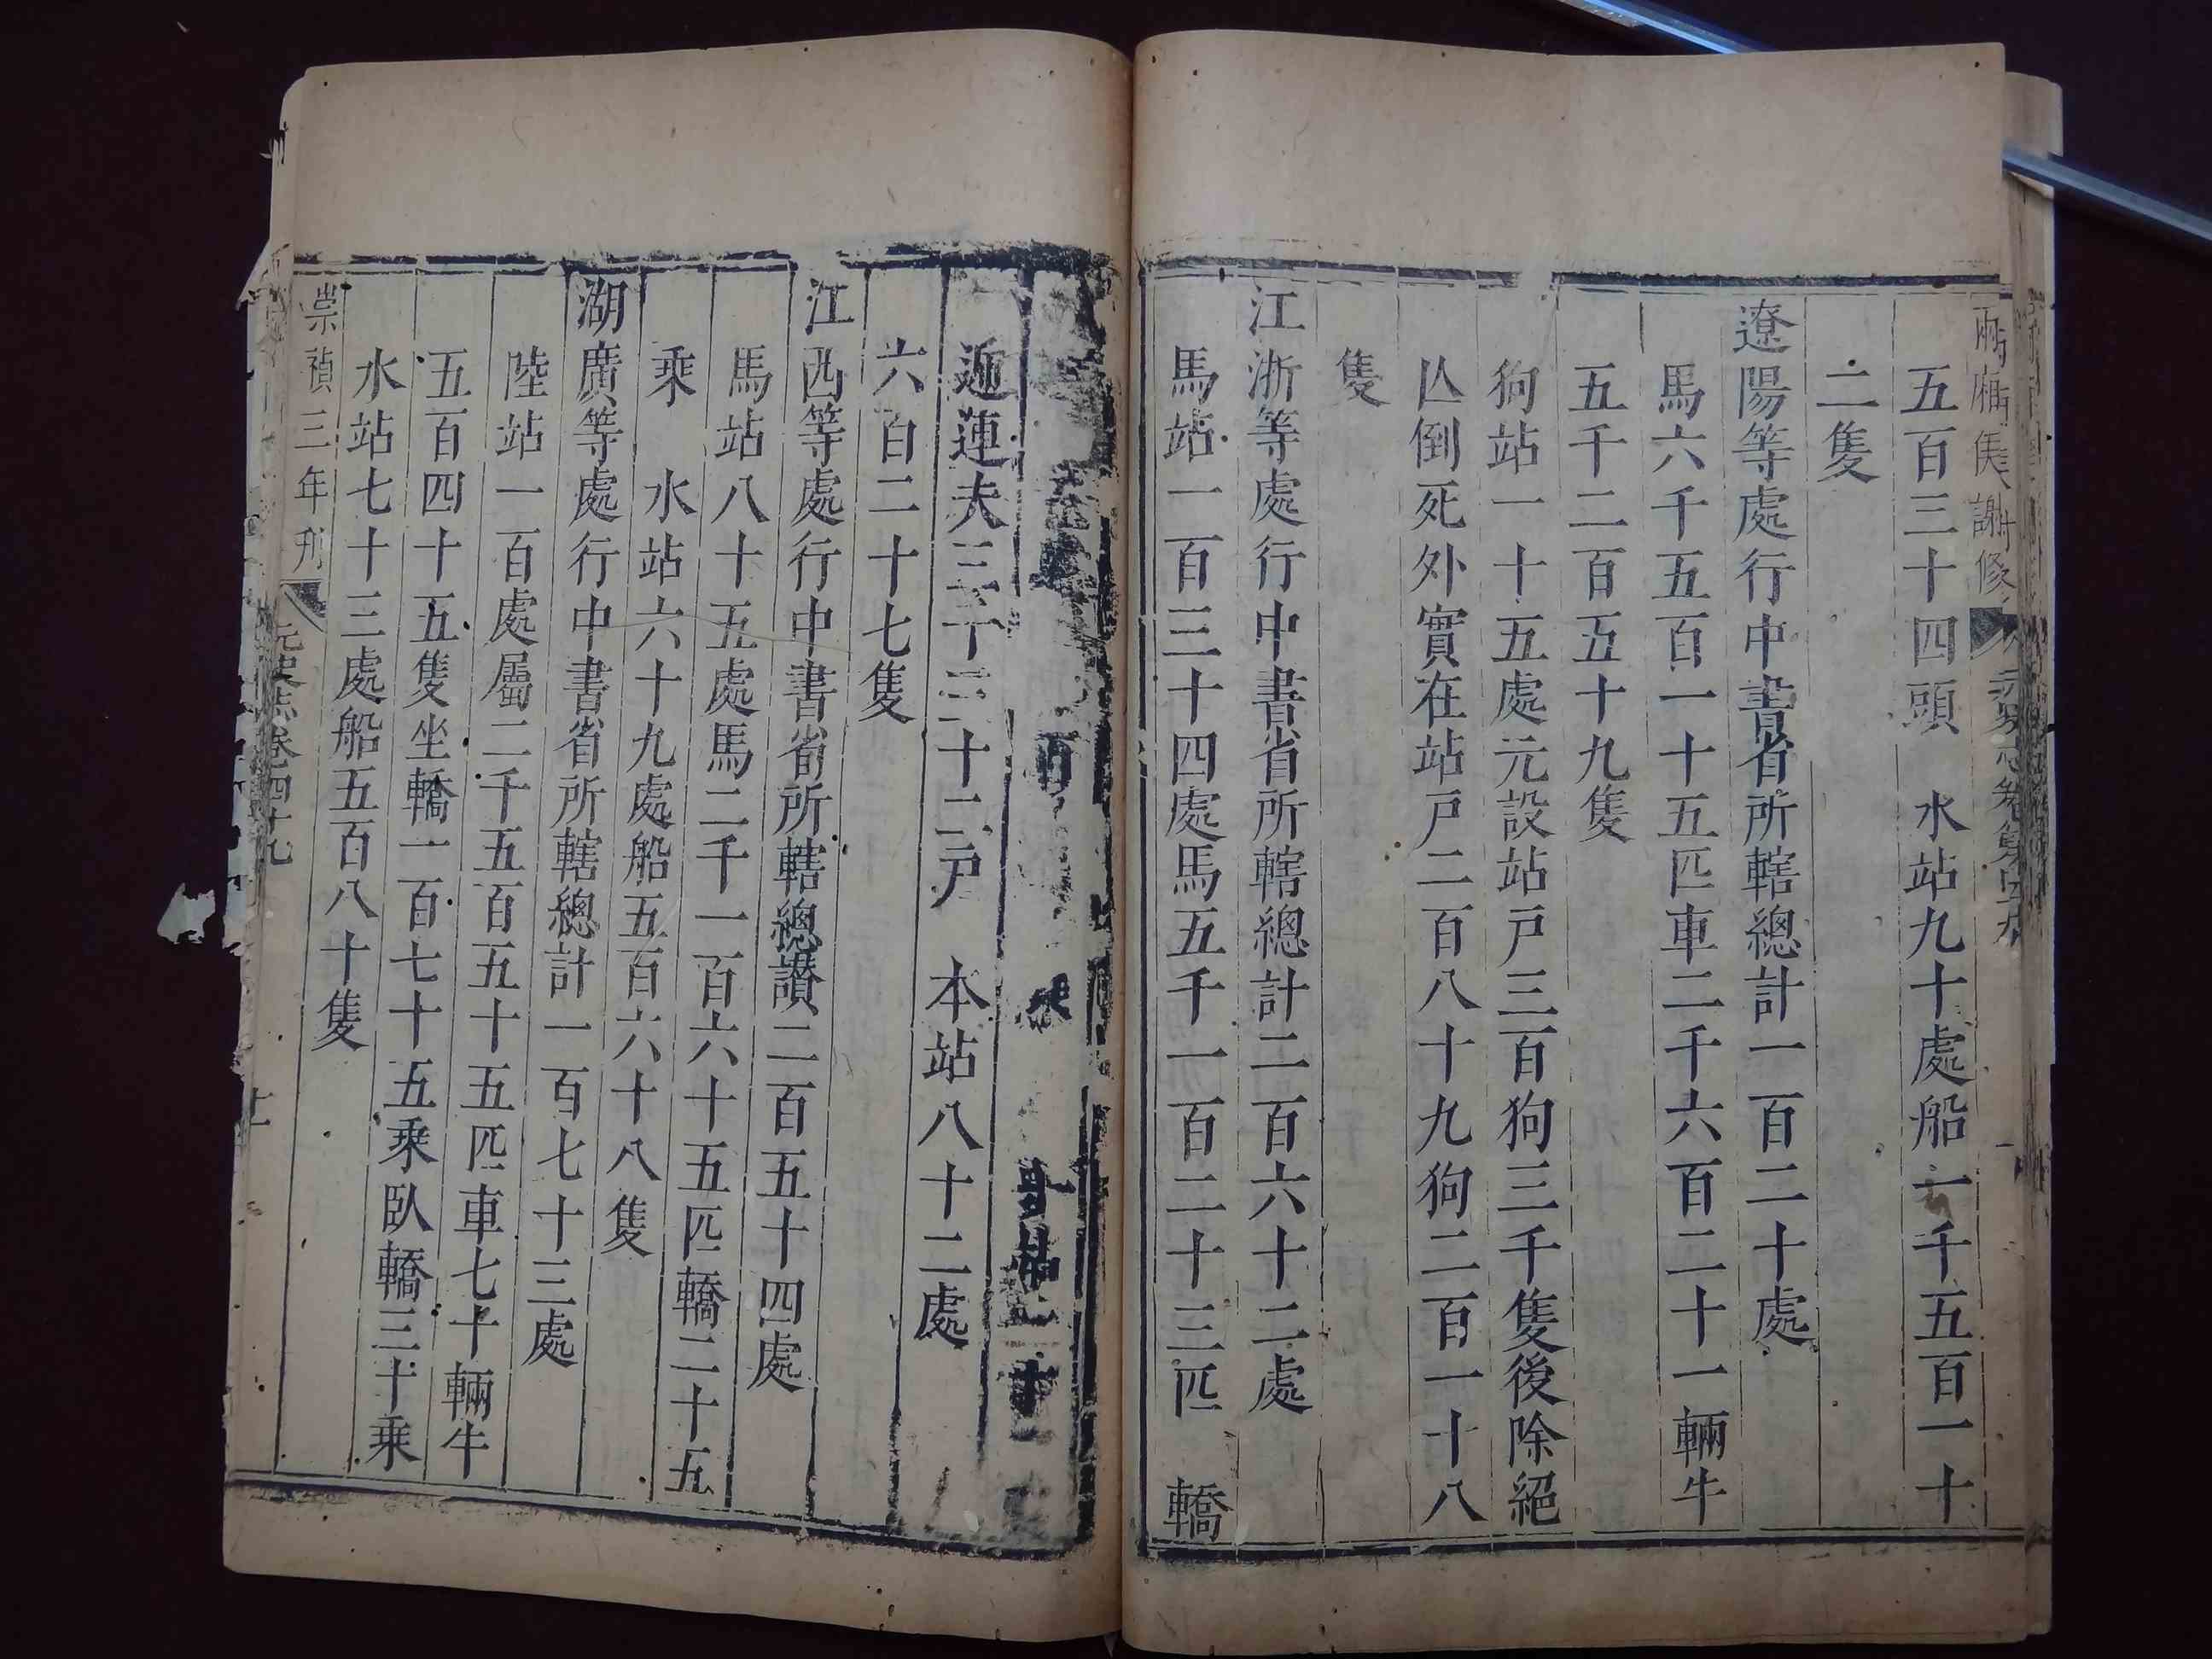 兩廂俟謝修
五百三十四頭 水站九十處船一千五百一十
二隻
遼陽等處行中書省所轄總計一百二十處
馬六千五百一十五匹車二千六百二十一輛牛
五千二百五十九隻
狗站一十五處元設站戶三百狗三千隻後除絕
亾倒死外實在站戶二百八十九狗二百一十八
隻
江浙等處行中書省所轄總計二百六十二處
馬站一百三十四處馬五千一百二十三匹 轎
遞運夫三千三十二戶 本站八十二處
六百二十七隻
江西等處行中書省所轄總讃二百五十四處
馬站八十五處馬二千一百六十五匹轎二十五
乘 水站六十九處船五百六十八隻
湖廣等處行中書省所轄總計一百七十三處
陸站一百處屬二千五百五十五匹車七十輛牛
五百四十五隻坐轎一百七十五乘臥轎三十乘
水站七十三處船五百八十隻
崇禎三年刋 元史志卷四十九